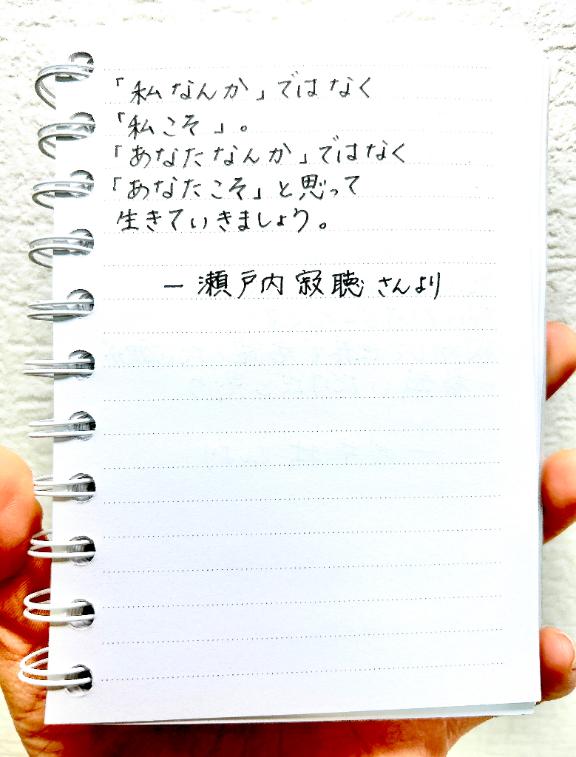 「私なんか」ではなく
「私こそ」。
「あなたなんか」ではなく
「あなたこそ」と思って
生きていきましょう。
ー瀬戸内寂聴さんより